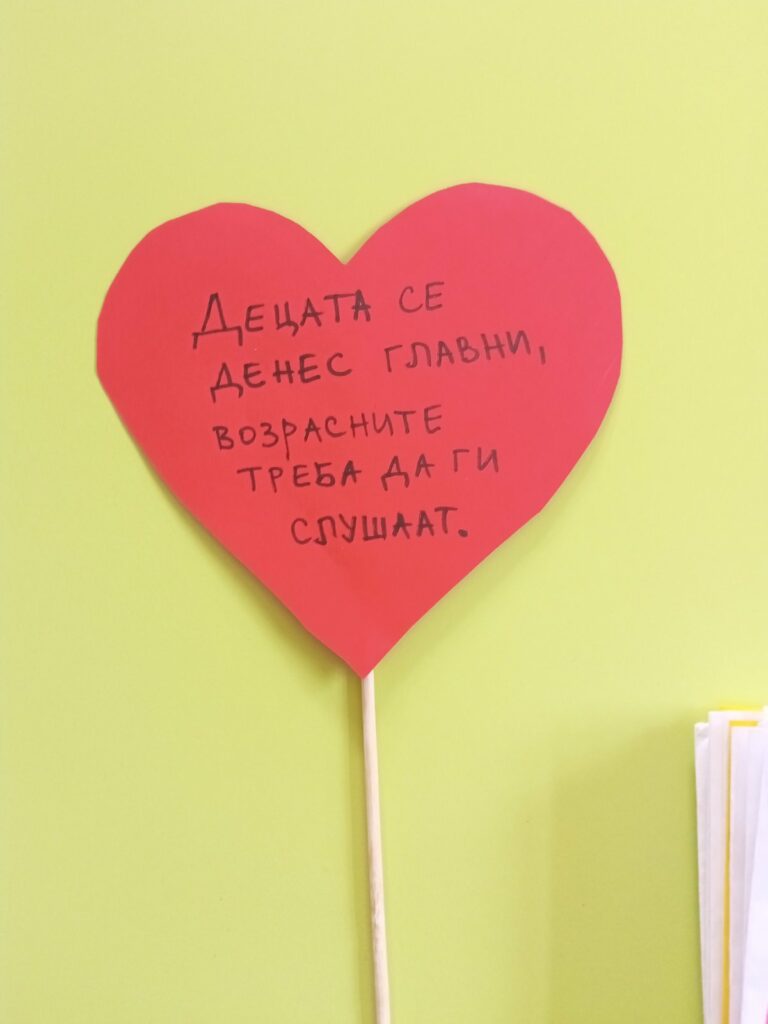 ДЕЦАТА СЕ
ДЕНЕС ГЛАВНИ,
ВОЗРАСНИТЕ
ТРЕБА ДА ГИ
СЛУШААТ.